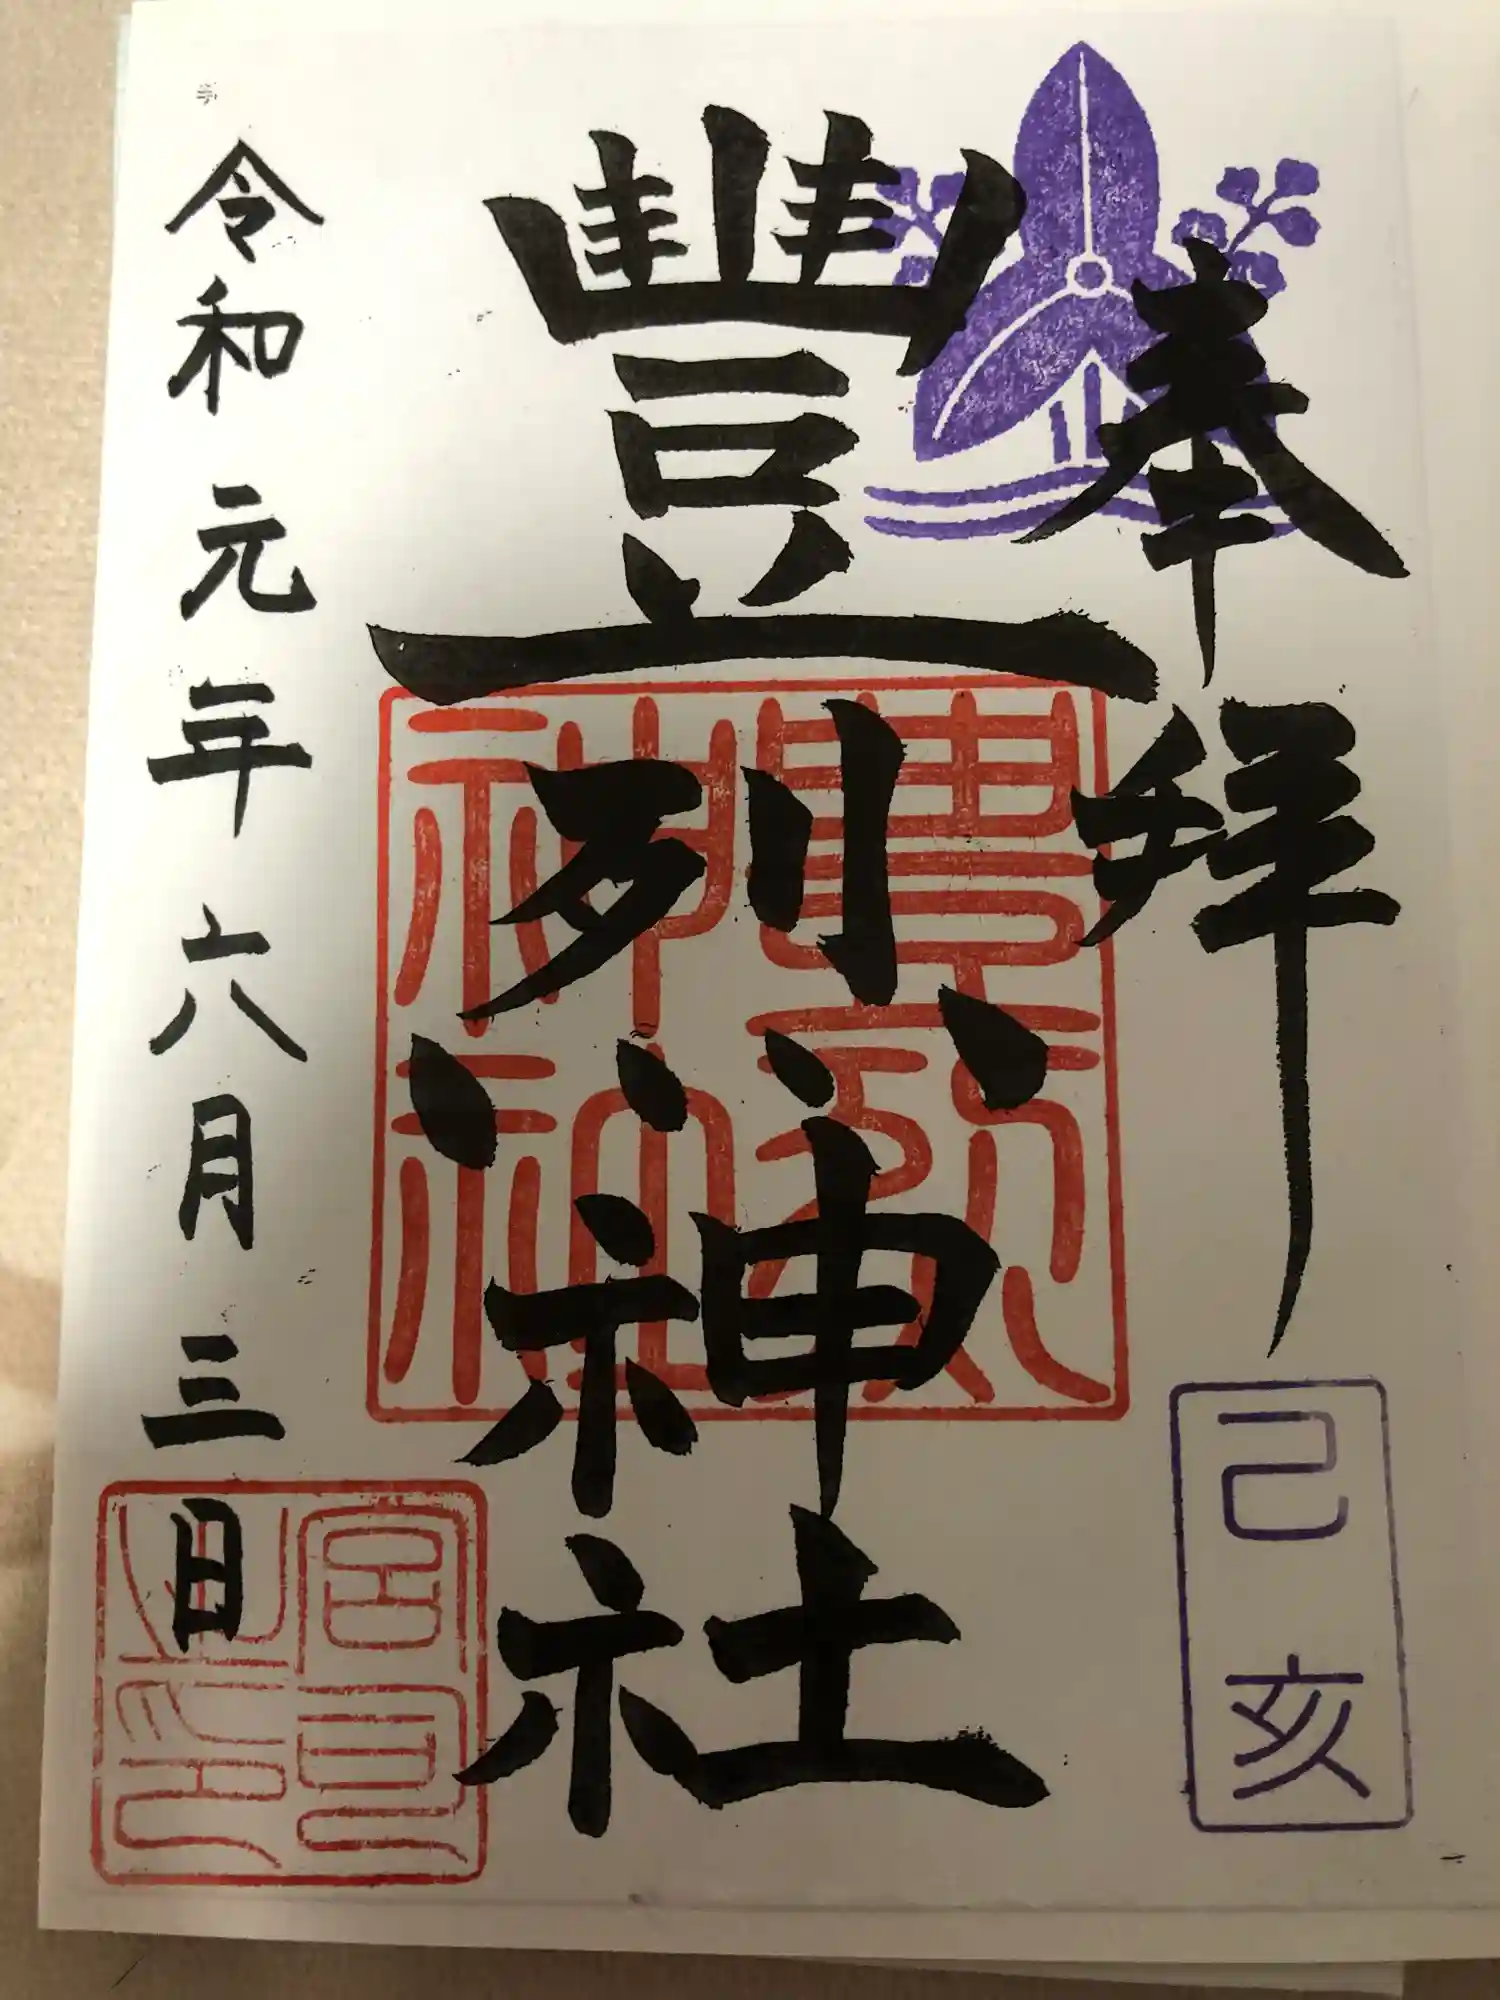 奉拝
己亥
豐烈神社
豊烈
神社
令和元年六月三日
宮司
之印